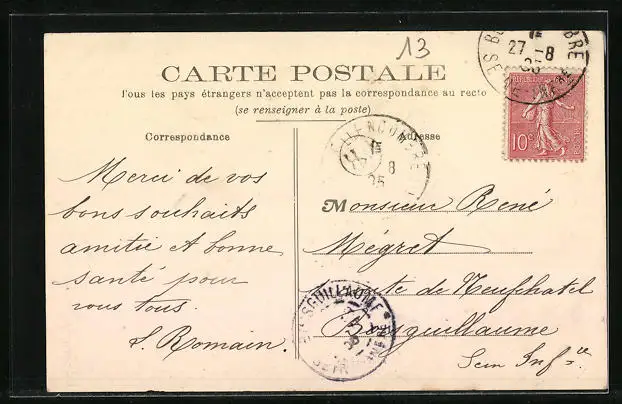 13
CARTE POSTALE
Tous les pays étrangers n'acceptent pas la correspondance au recto
(se renseigner à la poste)
Correspondance
Adresse
Merci de vos
bons souhaits
amitié et bonne
santé pour
vous tous.
S. Romain.
Monsieur René
Mégret
route de Neufchatel
Boisguillaume
Sein Infre
10c
27 8
8